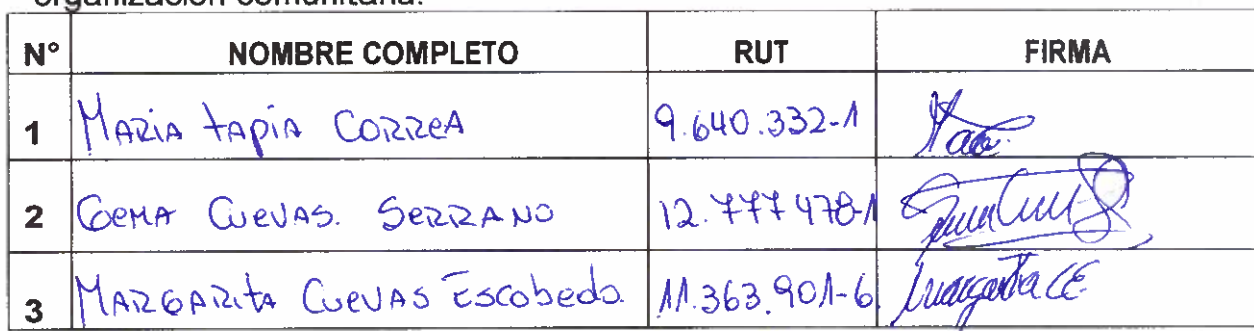 organización comunitaria.
N° NOMBRE COMPLETO RUT FIRMA
1 MARIA tAPIA CORReA 9.640.332-1
2 GeMA CUeVAS. SeRRANO 12.777478-1
3 MARGARItA CUeVAS Escobedo. 11.363.901-6 Margarita CE.